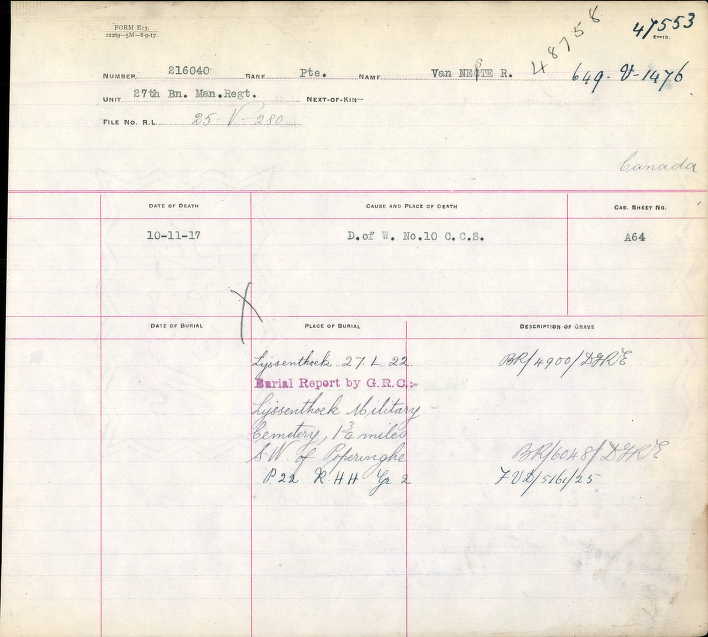 FORM E13.
47553
48758
NUMBER 216040 RANK Pte. NAME Van NESTE R.
649-V-1476
UNIT 27th Bn. Man.Regt. NEXT-OF-KIN—
FILE No. R.L. 25-V-280
Canada
DATE OF DEATH CAUSE AND PLACE OF DEATH CAS. SHEET No.
10-11-17 D.of W. No.10 C.C.S. A64
DATE OF BURIAL PLACE OF BURIAL DESCRIPTION OF GRAVE
Lijssenthoek 27. L 22 BR/4900/DGR&E
Burial Report by G.R.C:-
Lijssenthoek Military
Cemetery, miles
S.W. of Poperinghe BR/6048/DGR&E
P 22 R H H Gr 2